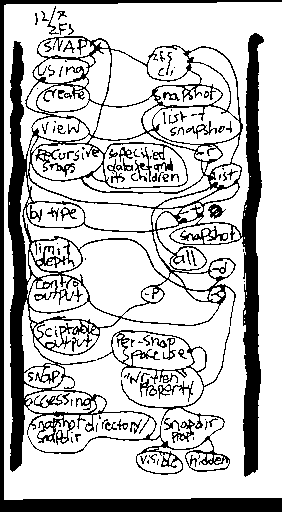 12/7
ZFS
SNAP
using
zfs
cli
create
snapshot
view
list -t
snapshot
-r
recursive
snaps
specified
dataset and
its children
list
by type
-t
snapshot
all
limit
depth
-d
control
output
-o
-p
sciptable
output
per-snap
space use
snap
"written"
property
accessing
snapshot directory/
snapdir
snapdir
prop.
visible
hidden